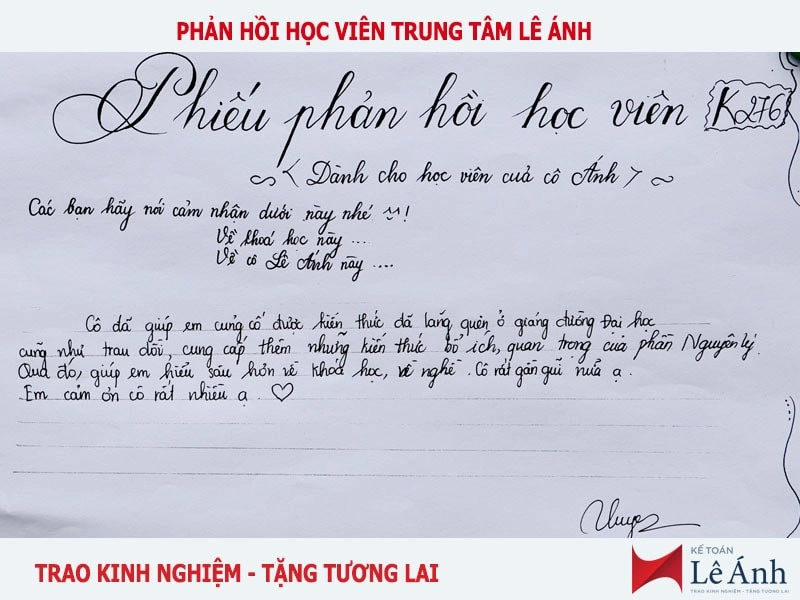 PHẢN HỒI HỌC VIÊN TRUNG TÂM LÊ ÁNH
Phiếu phản hồi học viên K276
< Dành cho học viên của cô Ánh >
Các bạn hãy nói cảm nhận dưới này nhé !
Về khoá học này ....
Về cô Lê Ánh này ....
Cô đã giúp em cung cố được kiến thức đã lang quên ở giảng đường Đại học
cũng như trau dồi, cung cấp thêm những kiến thức bổ ích, quan trọng của phần Nguyên lý.
Qua đó, giúp em hiểu sâu hơn về khoá học, về nghề. Cô rất gần gũi nữa ạ.
Em cảm ơn cô rất nhiều ạ. ♡
TRAO KINH NGHIỆM - TẶNG TƯƠNG LAI
KẾ TOÁN
Lê Ánh
TRAO KINH NGHIỆM - TẶNG TƯƠNG LAI